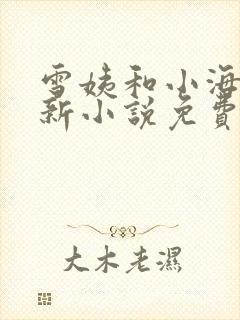 雪姨和小海
新小説免費
大木老濕